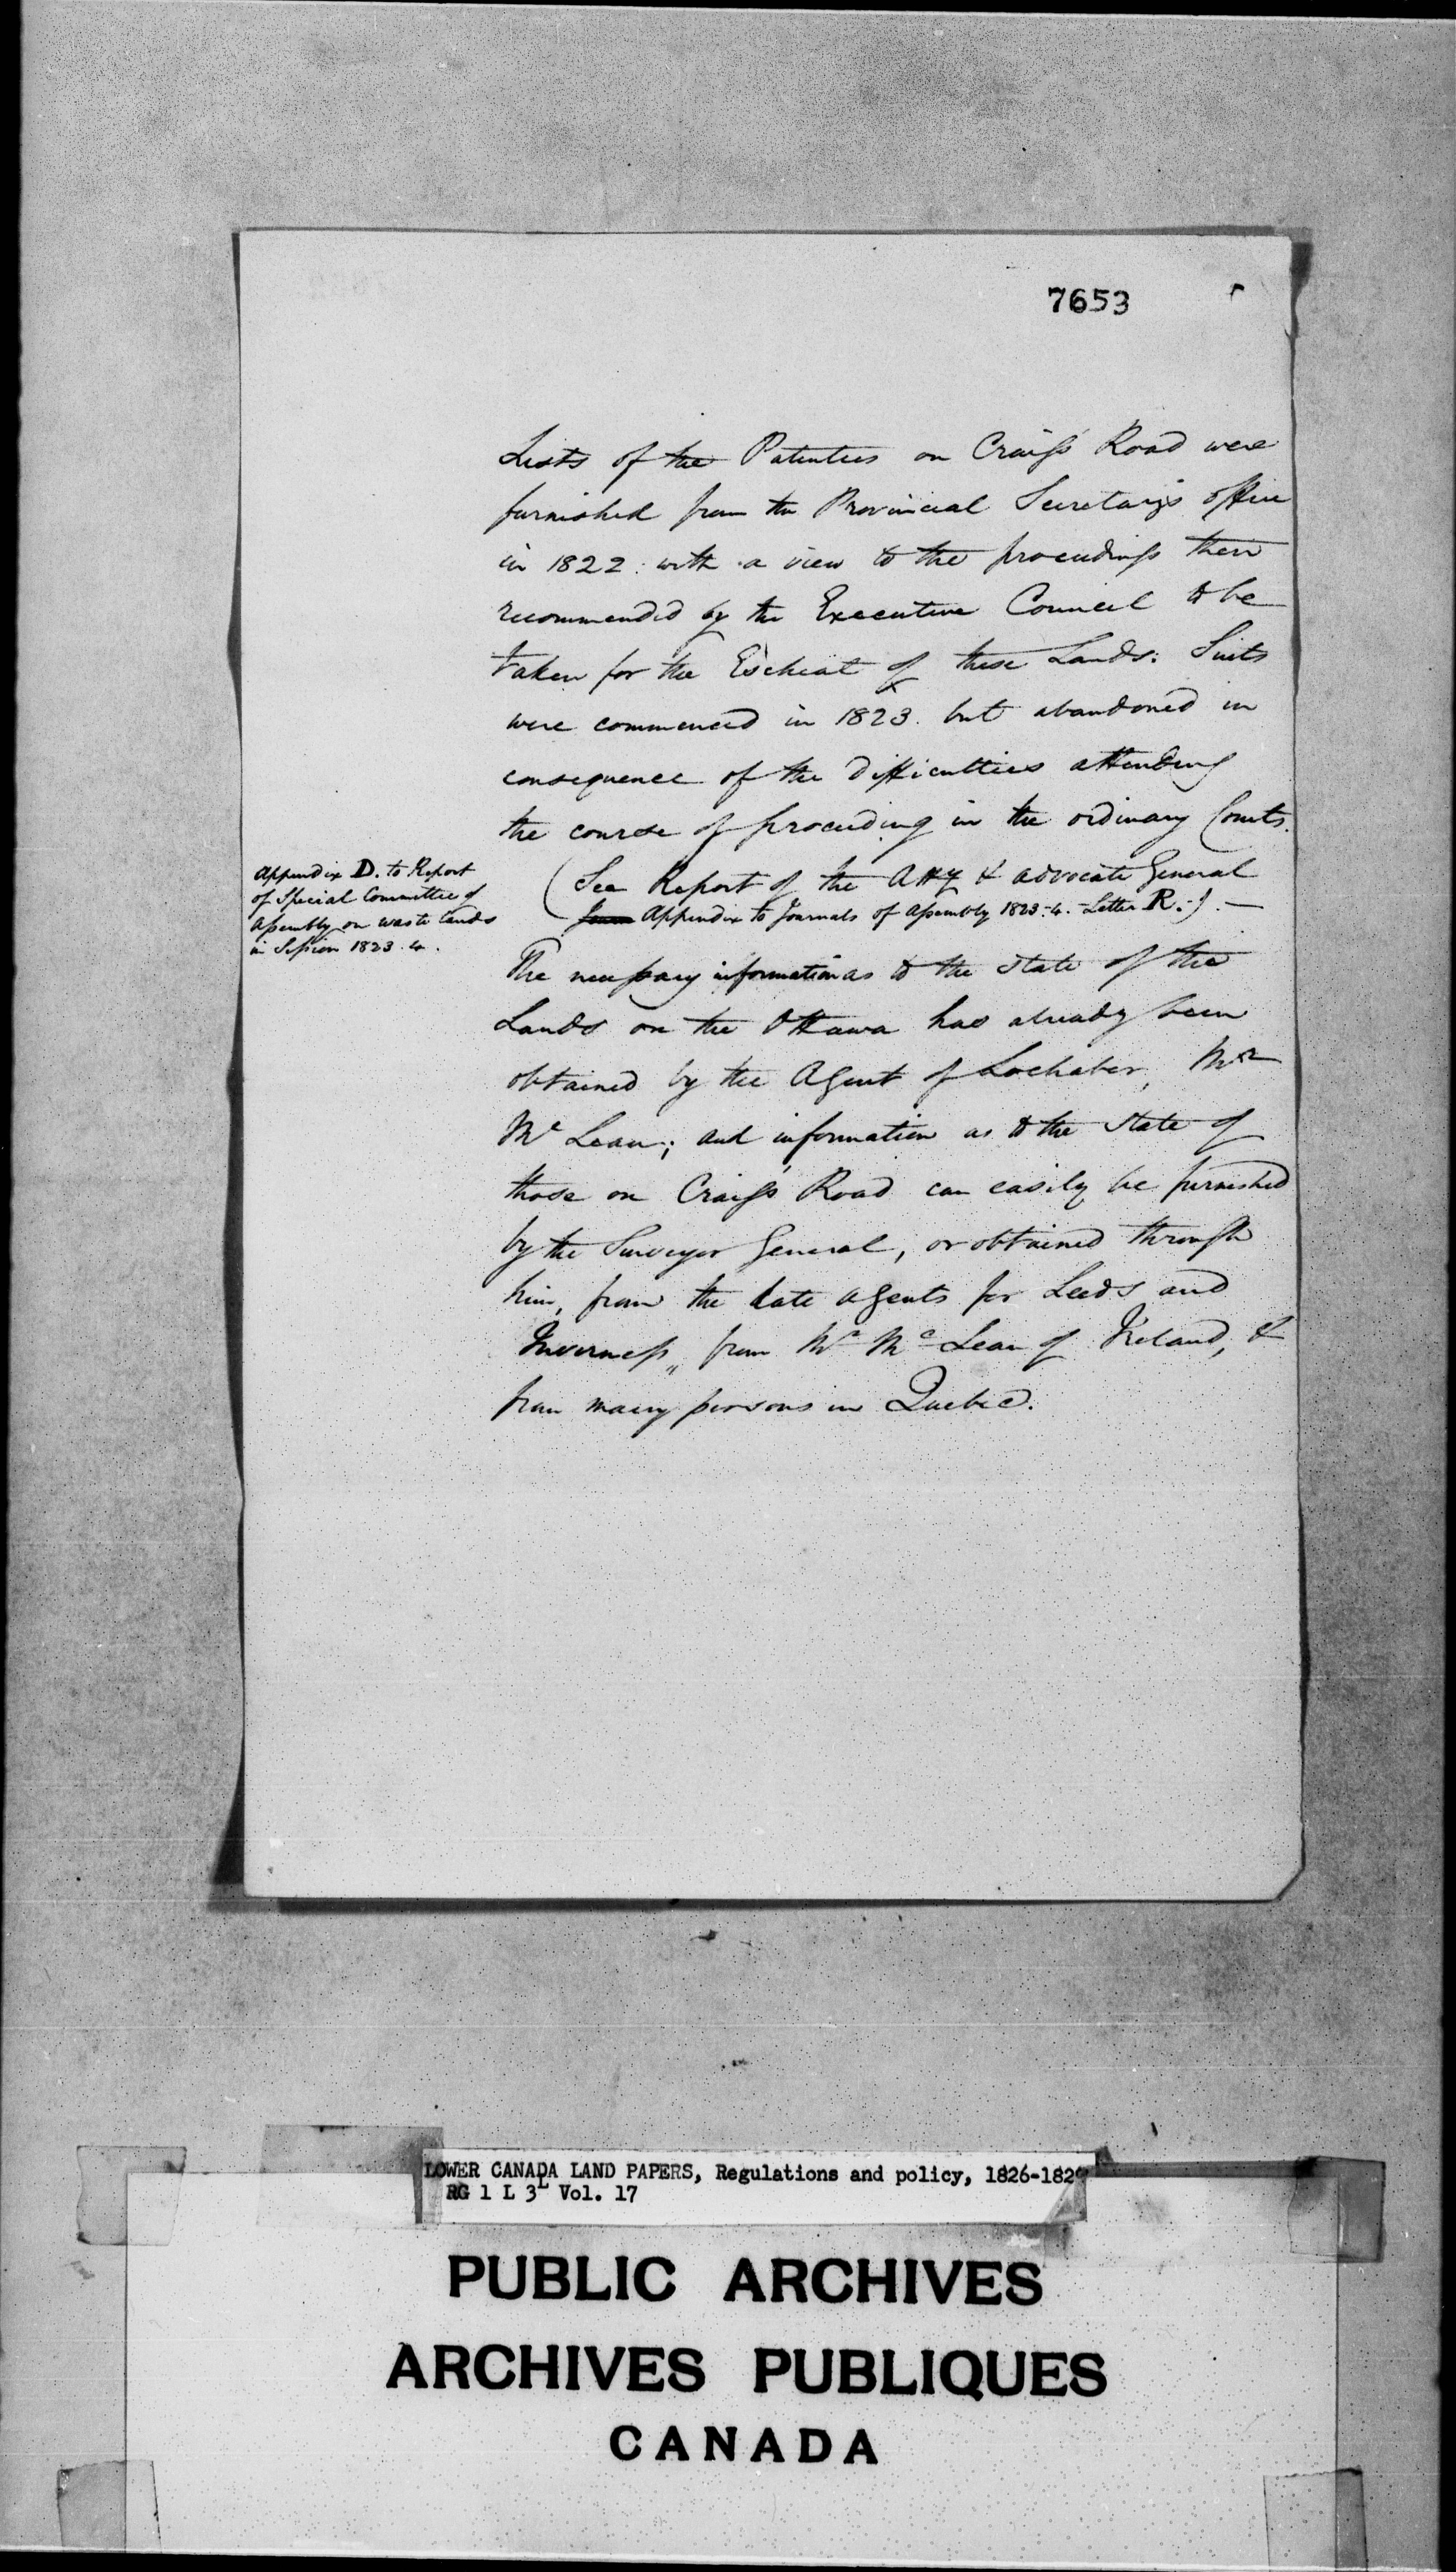 7653
Lists of the Patentees on Craig's Road were
furnished from the Provincial Secretary's office
in 1822. with a view to the proceedings then
recommended by the Executive Council to be
taken for the Escheat of these Lands: Suits
were commenced in 1823. but abandoned in
consequence of the difficulties attending
the course of proceeding in the ordinary Courts.
(See Report of the Atty & Advocate General
Appendix to Journals of Assembly 1823.4. - Letter R.) . —
Appendix D. to Report
of Special Committee of
Assembly on waste lands
in Session 1823.4.
The necessary information as to the state of the
Lands on the Ottawa has already been
obtained by the Agent of Lochaber, Mr
Mc Lean; and information as to the state of
those on Craig's Road can easily be furnished
by the Surveyor General, or obtained through
him, from the late agents for Leeds and
Inverness, from Mr Mc Lean of Ireland, &
from many persons in Quebec.
LOWER CANADA LAND PAPERS, Regulations and policy, 1826-1829
RG 1 L 3L Vol. 17
PUBLIC ARCHIVES
ARCHIVES PUBLIQUES
CANADA